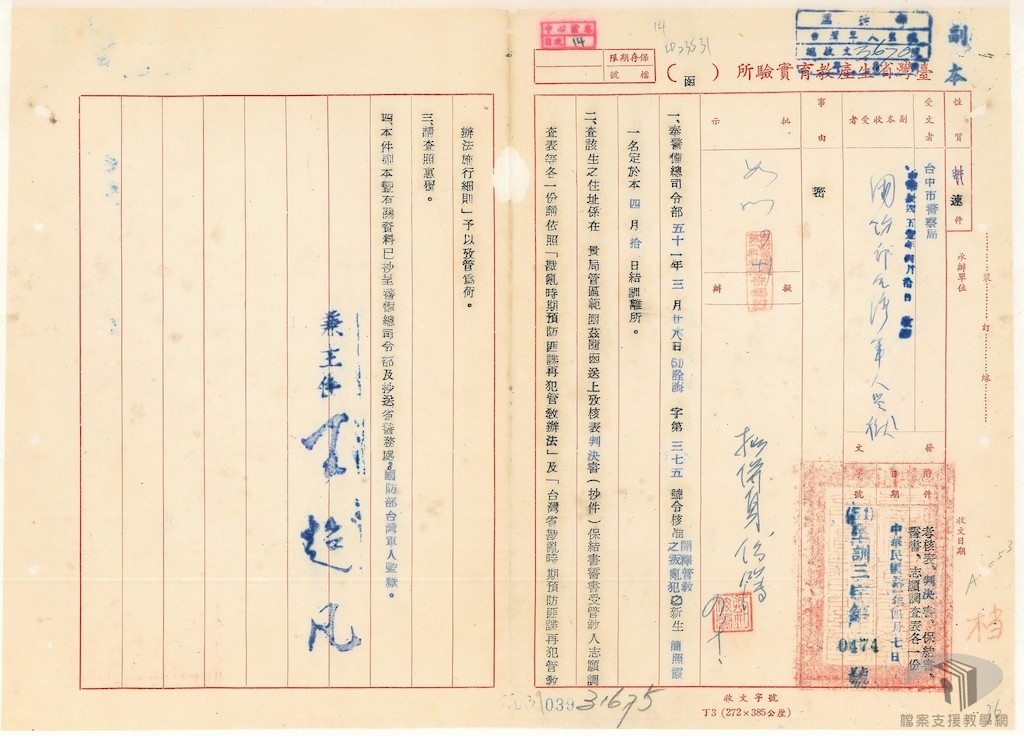 副本
臺灣省生產教育實驗所
（函）
保存期限
檔號
14
3670
性質
速件
受文者
台中市警察局
副本收受者
國防部台灣軍人監獄
事由
密
批示
擬辦
如以
發文
附件
考核表、判決書、保結書、
誓書、志願調查表各一份
日期
中華民國 年四月七日
字號
(51)
訓三字第
0474
號
承辦單位
裝訂線
收文日期
收文字號
一、奉警備總司令部五十一年三月廿八日(51)詮誨字第三七五號令核准開釋管敎之叛亂犯乙新生簡照
一名定於本四月拾日結訓離所。
二、查該生之住址係在貴局管區範圍茲隨函送上攷核表判決書（抄件）保結書誓書受管敎人志願調
查表等各一份請依照「戡亂時期預防匪諜再犯管敎辦法」及「台灣省戡亂時期預防匪諜再犯管敎
辦法施行細則」予以攷管爲荷。
三、請查照惠覆。
四、本件副本暨有關資料已抄呈警備總司令部及抄送省警務處。國防部台灣軍人監獄。
兼主任
超凡
039
31675
丁3 (272×385公厘)
档
檔案支援教學網